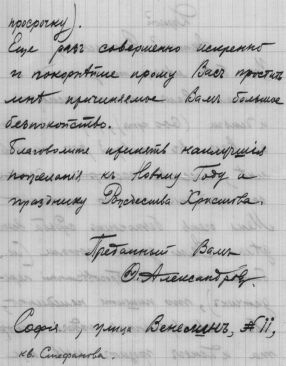 просрочку).
Еще разъ совершенно искренно
и покорнѣйше прошу Васъ простить
мнѣ причиняемое Вамъ большое
безпокойство.
Благоволите принять наилучшія
пожеланія къ Новому Году и
празднику Рождества Христова.
Преданный Вамъ
Ө. Александровъ.
Софія, улица Венелинъ, № 11,
кв. Стефанова